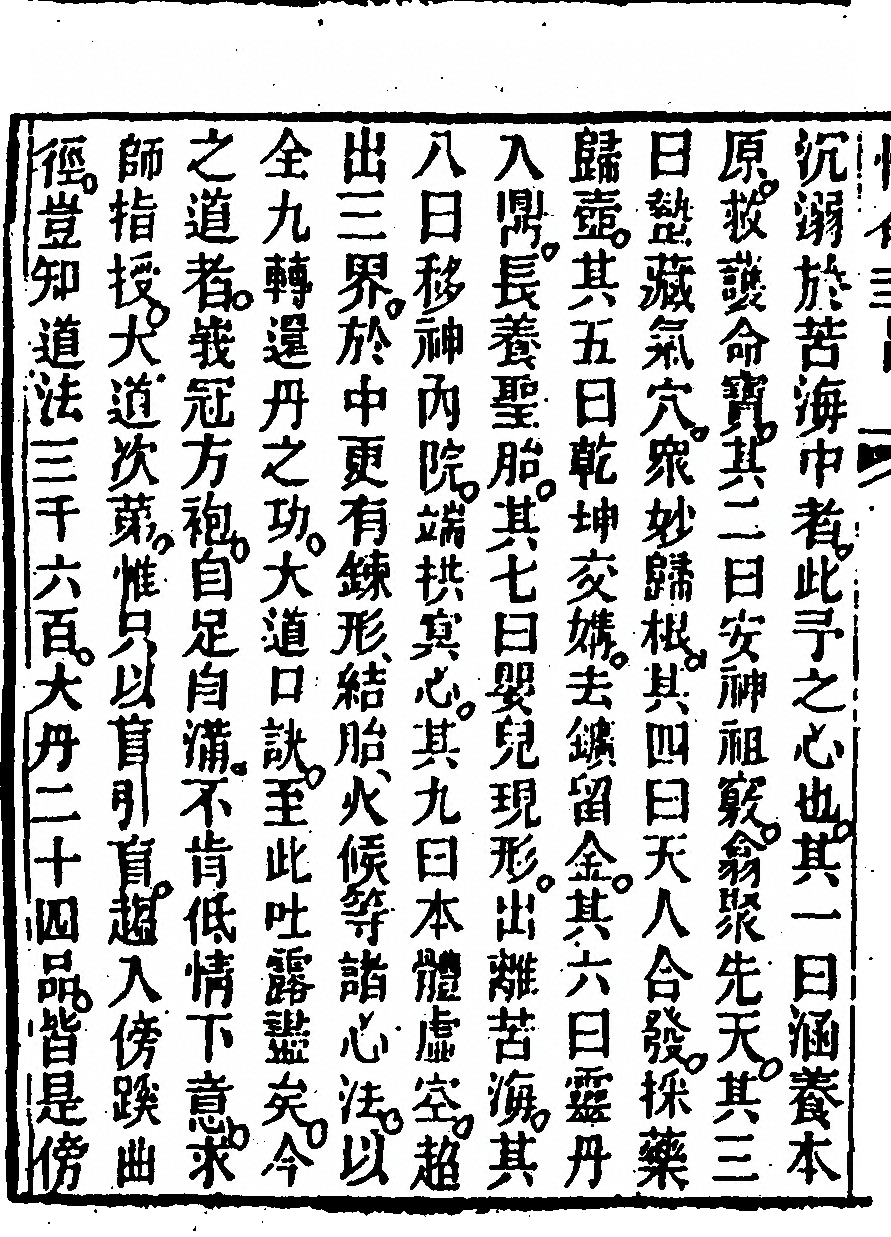 沉溺於苦海中者。此予之心也。其一曰涵養本
原。救護命寶。其二曰安神祖竅。翕聚先天。其三
曰蟄藏氣穴。眾妙歸根。其四曰天人合發。採藥
歸壺。其五曰乾坤交媾。去鑛留金。其六曰靈丹
入鼎。長養聖胎。其七曰嬰兒現形。出離苦海。其
八曰移神內院。端拱冥心。其九曰本體虛空。超
出三界。於中更有鍊形、結胎、火候等諸心法。以
全九轉還丹之功。大道口訣。至此吐露盡矣。今
之道者。峩冠方袍。自足自滿。不肯低情下意。求
師指授。大道次第。惟只以盲引盲。趨入傍蹊曲
徑。豈知道法三千六百。大丹二十四品。皆是傍